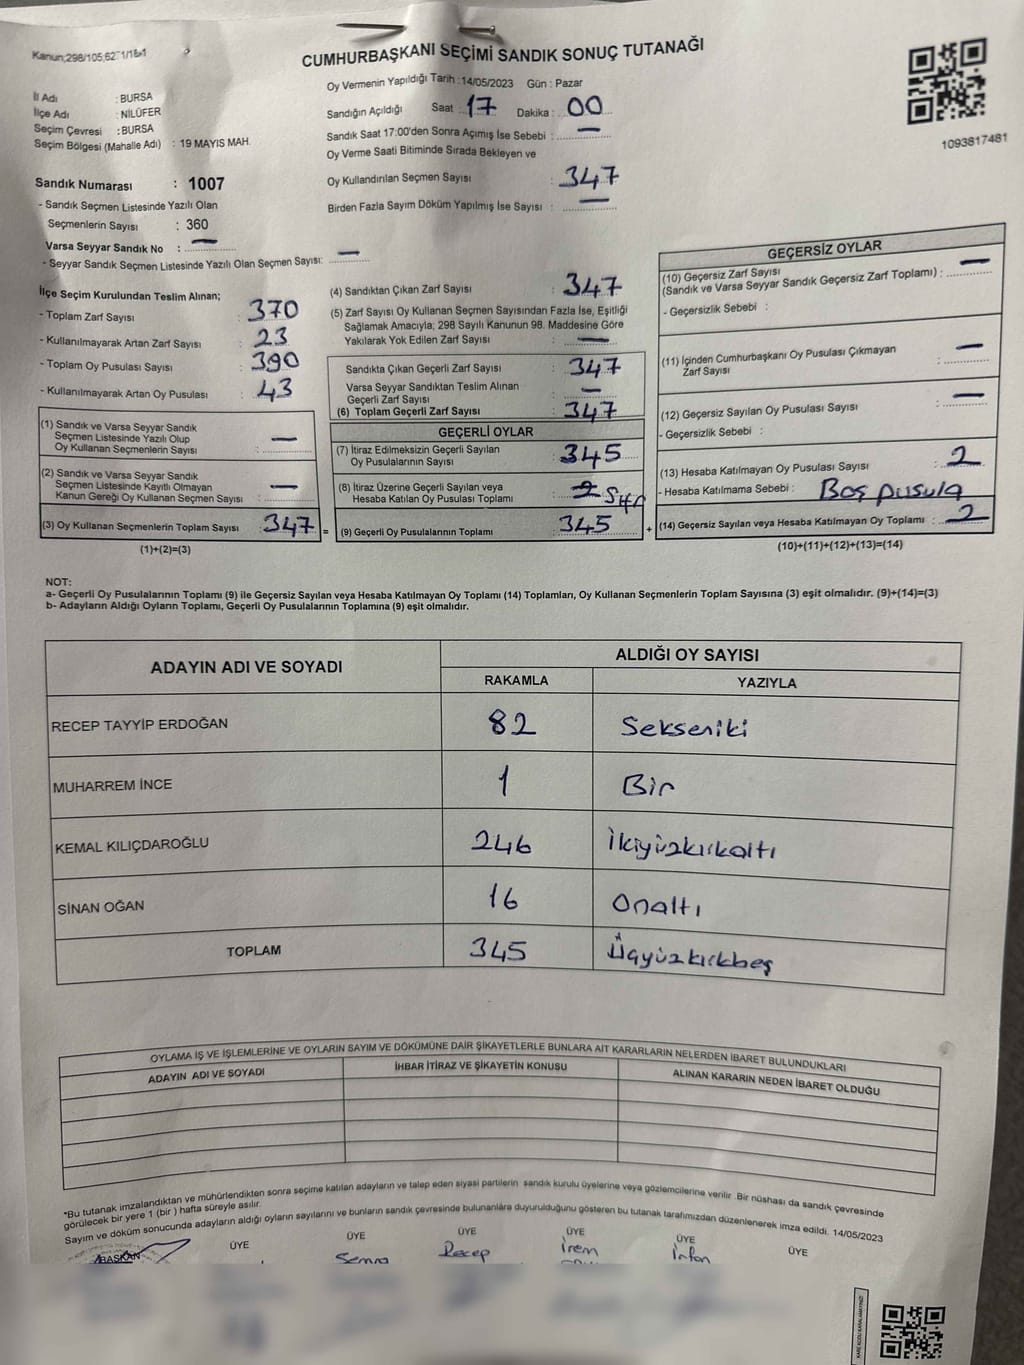 Kanun;298/105,62
CUMHURBAŞKANI SEÇİMİ SANDIK SONUÇ TUTANAĞI
Oy Vermenin Yapıldığı Tarih :14/05/2023 Gün : Pazar
İl Adı : BURSA
İlçe Adı : NİLÜFER
Seçim Çevresi : BURSA
Seçim Bölgesi (Mahalle Adı) : 19 MAYIS MAH.
Sandığın Açıldığı Saat : 17 Dakika : 00
Sandık Saat 17:00'den Sonra Açımış İse Sebebi : —
Oy Verme Saati Bitiminde Sırada Bekleyen ve
Oy Kullandırılan Seçmen Sayısı : 347
Birden Fazla Sayım Döküm Yapılmış İse Sayısı : —
1093817481
Sandık Numarası : 1007
- Sandık Seçmen Listesinde Yazılı Olan
Seçmenlerin Sayısı : 360
Varsa Seyyar Sandık No : —
- Seyyar Sandık Seçmen Listesinde Yazılı Olan Seçmen Sayısı: —
İlçe Seçim Kurulundan Teslim Alınan;
- Toplam Zarf Sayısı : 370
- Kullanılmayarak Artan Zarf Sayısı : 23
- Toplam Oy Pusulası Sayısı : 390
- Kullanılmayarak Artan Oy Pusulası : 43
(1) Sandık ve Varsa Seyyar Sandık
Seçmen Listesinde Yazılı Olup
Oy Kullanan Seçmenlerin Sayısı : —
(2) Sandık ve Varsa Seyyar Sandık
Seçmen Listesinde Kayıtlı Olmayan
Kanun Gereği Oy Kullanan Seçmen Sayısı : —
(3) Oy Kullanan Seçmenlerin Toplam Sayısı : 347 =
(1)+(2)=(3)
(4) Sandıktan Çıkan Zarf Sayısı : 347
(5) Zarf Sayısı Oy Kullanan Seçmen Sayısından Fazla İse, Eşitliği
Sağlamak Amacıyla; 298 Sayılı Kanunun 98. Maddesine Göre
Yakılarak Yok Edilen Zarf Sayısı : —
Sandıkta Çıkan Geçerli Zarf Sayısı : 347
Varsa Seyyar Sandıktan Teslim Alınan
Geçerli Zarf Sayısı : —
(6) Toplam Geçerli Zarf Sayısı : 347
GEÇERLİ OYLAR
(7) İtiraz Edilmeksizin Geçerli Sayılan
Oy Pusulalarının Sayısı : 345
(8) İtiraz Üzerine Geçerli Sayılan veya
Hesaba Katılan Oy Pusulası Toplamı : 2
(9) Geçerli Oy Pusulalarının Toplamı : 345 +
GEÇERSİZ OYLAR
(10) Geçersiz Zarf Sayısı
(Sandık ve Varsa Seyyar Sandık Geçersiz Zarf Toplamı) : —
- Geçersizlik Sebebi :
(11) İçinden Cumhurbaşkanı Oy Pusulası Çıkmayan
Zarf Sayısı : —
(12) Geçersiz Sayılan Oy Pusulası Sayısı : —
- Geçersizlik Sebebi :
(13) Hesaba Katılmayan Oy Pusulası Sayısı : 2
- Hesaba Katılmama Sebebi : Boş pusula
(14) Geçersiz Sayılan veya Hesaba Katılmayan Oy Toplamı : 2
(10)+(11)+(12)+(13)=(14)
NOT:
a- Geçerli Oy Pusulalarının Toplamı (9) ile Geçersiz Sayılan veya Hesaba Katılmayan Oy Toplamı (14) Toplamları, Oy Kullanan Seçmenlerin Toplam Sayısına (3) eşit olmalıdır. (9)+(14)=(3)
b- Adayların Aldığı Oyların Toplamı, Geçerli Oy Pusulalarının Toplamına (9) eşit olmalıdır.
ADAYIN ADI VE SOYADI
ALDIĞI OY SAYISI
RAKAMLA YAZIYLA
RECEP TAYYİP ERDOĞAN 82 Sekseniki
MUHARREM İNCE 1 Bir
KEMAL KILIÇDAROĞLU 246 İkiyüzkırkaltı
SİNAN OĞAN 16 Onaltı
TOPLAM 345 Üçyüzkırkbeş
OYLAMA İŞ VE İŞLEMLERİNE VE OYLARIN SAYIM VE DÖKÜMÜNE DAİR ŞİKAYETLERLE BUNLARA AİT KARARLARIN NELERDEN İBARET BULUNDUKLARI
ADAYIN ADI VE SOYADI İHBAR İTİRAZ VE ŞİKAYETİN KONUSU ALINAN KARARIN NEDEN İBARET OLDUĞU
*Bu tutanak imzalandıktan ve mühürlendikten sonra seçime katılan adayların ve talep eden siyasi partilerin sandık kurulu üyelerine veya gözlemcilerine verilir. Bir nüshası da sandık çevresinde
görülecek bir yere 1 (bir ) hafta süreyle asılır.
Sayım ve döküm sonucunda adayların aldığı oyların sayılarını ve bunların sandık çevresinde bulunanlara duyurulduğunu gösteren bu tutanak tarafımızdan düzenlenerek imza edildi. 14/05/2023
BAŞKAN ÜYE ÜYE ÜYE ÜYE ÜYE ÜYE
Semra Recep İrem İrfan